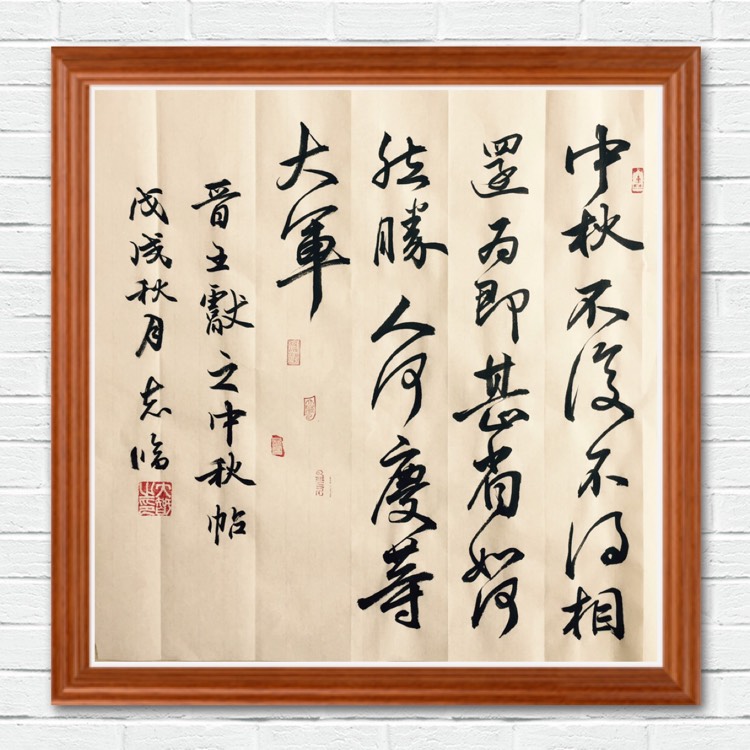 中秋不復不得相
還為即甚省如何
然勝人何慶等
大軍
晉王獻之中秋帖
戊戌秋月志臨